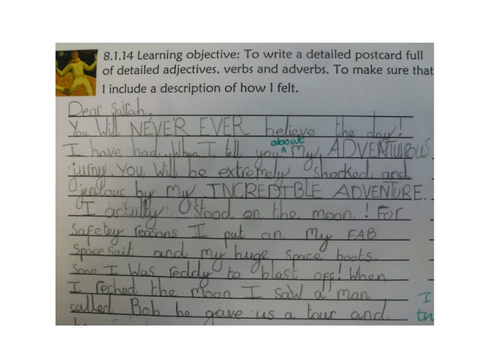 8.1.14 Learning objective: To write a detailed postcard full
of detailed adjectives, verbs and adverbs. To make sure that
I include a description of how I felt.
Dear Sairah,
You Will NEVER EVER believe the day!
about
I have had. When I tell you My ADVENTUROUS
jurny You Will be extremely shocked and
jealous by my INCREDIBLE ADVENTURE.
I actully stood on the moon! For
safetey reasons I put on My FAB
Space suit and my huge space boots.
Soon I Was reddy to blast off! When
I reched the Moon I Saw a man
called Bob he gave us a tour and
I